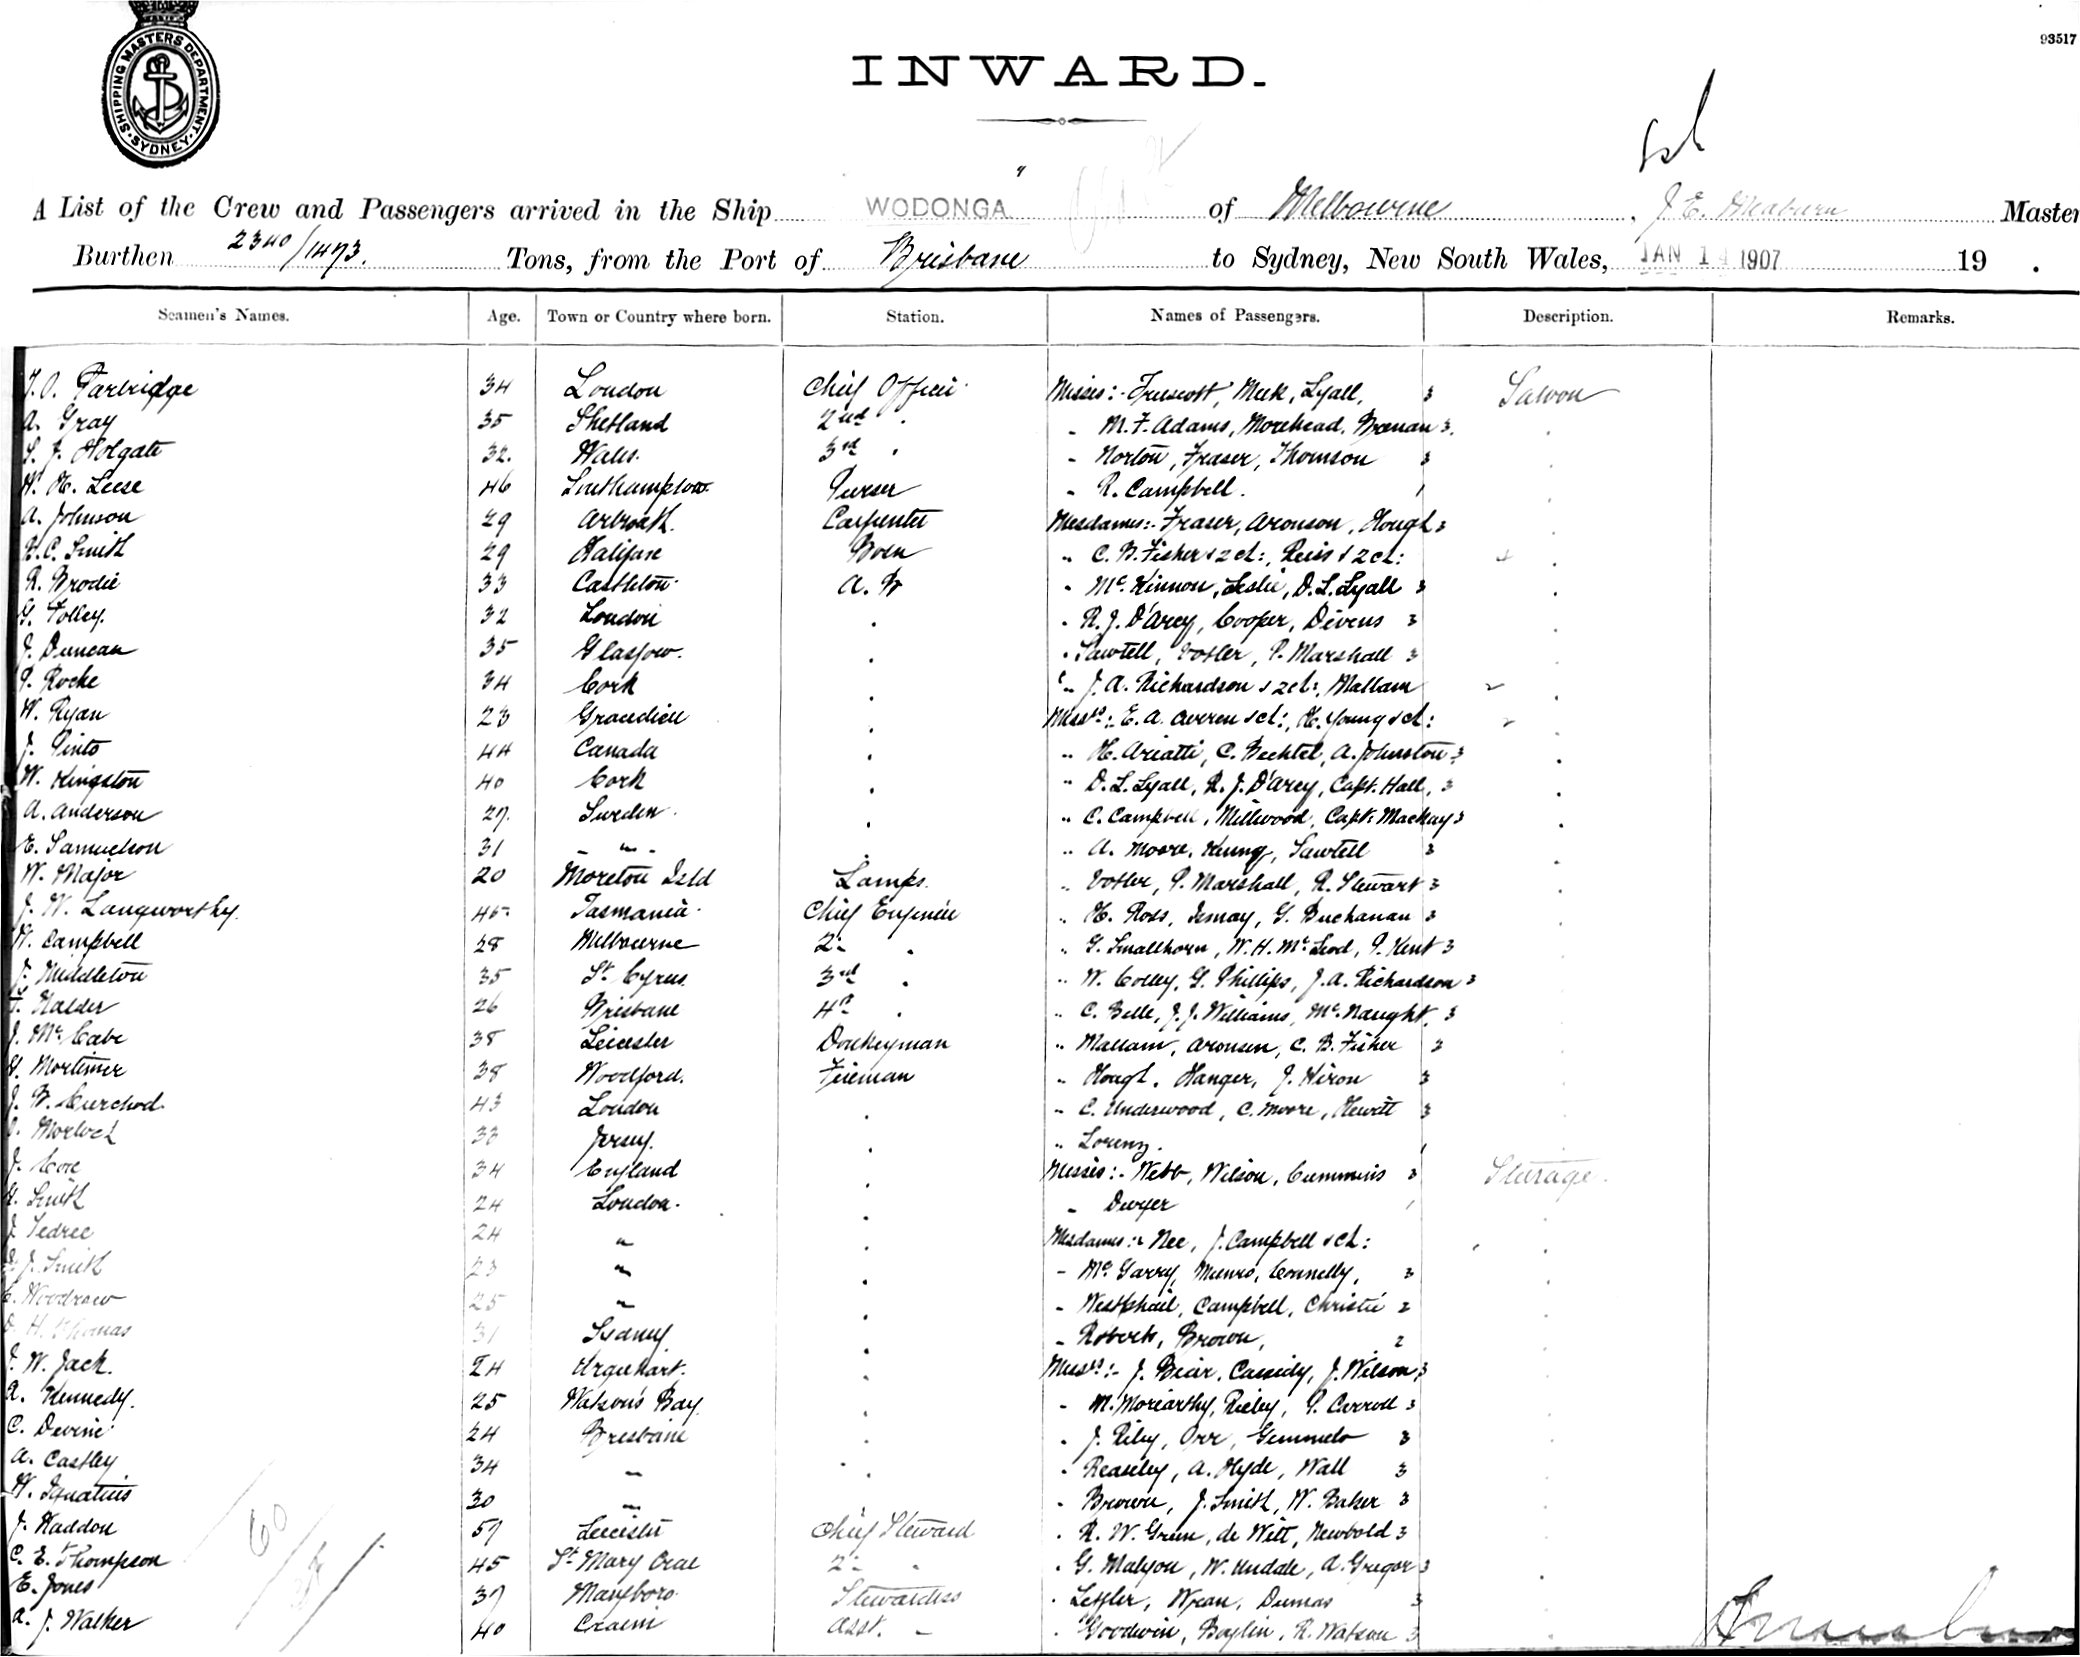 93517
SHIPPING MASTERS DEPARTMENT. SYDNEY
INWARD.
A List of the Crew and Passengers arrived in the Ship WODONGA of Melbourne, J. E. Meaburn Master
Burthen 2340/1473. Tons, from the Port of Brisbane to Sydney, New South Wales, JAN 14 1907 19 .
Seamen's Names. Age. Town or Country where born. Station. Names of Passengers. Description. Remarks.
Partridge 34 London Chief Officer Misses:- Prescott, Meek, Lyall, 3 Saloon
A. Gray 35 Shetland 2nd " " M. F. Adams, Morehead, Brenan 3.
S. J. Holgate 32. Wales. 3rd " " Norton, Fraser, Thomson 3
W. H. Leese 46 Southampton Purser " R. Campbell. 1
A. Johnson 29 Arbroath. Carpenter Mesdames:- Fraser, Aronson, Hough 3
Smith 29 Halifax Bosn " C. B. Fisher & 2 ch:, Reiss & 2 ch:
R. Brodie 33 Castleton A. B " McKinnon, Leslie, D. L. Lyall 3
G. Tolley. 32 London " " R. J. D'Arcy, Cooper, Divens 3
J. Duncan 35 Glasgow. " " Sawtell, Vosler, P. Marshall 3
P. Roche 34 Cork " " J. A. Richardson & 2 ch:, Mallam
W. Ryan 23 " Messrs:- E. A. & ch:, H. Young & ch:
J. Pinto 44 Canada " " H. Ariatti, C. Bechtel, A. Johnston 3
W. Kingston 40 Cork " " D. L. Lyall, R. J. D'Arcy, Capt. Hall, 3
A. Anderson 27. Sweden " " C. Campbell, Millwood, Capt: Mackay 3
E. Samuelson 31 " " " A. Moore, Sawtell 3
W. Major 20 Moreton Isld Lamps. " Vosler, P. Marshall, R. Stewart 3
J. W. Langworthy. 45 Tasmania Chief Engineer " H. Ross, Ismay, G. Buchanan 3
W. Campbell 28 Melbourne 2" " " G. Smallhorn, W. H. McLeod, P. Kent 3
J. Middleton 35 St. Cyrus. 3rd " " W. Colley, G. Phillips, J. A. Richardson 3
Halder 26 Brisbane 4th " " C. Belle, J. J. Williams, McNaught, 3
J. McCabe 38 Leicester Donkeyman " Mallam, Aronsen, C. B. Fisher 3
H. Mortimer 38 Woodford. Fireman " Hough, Hanger, J. Hixon 3
J. B. Curchod. 43 London " " C. Underwood, C. Moore, Hewitt 3
Morloch 33 Jersey. " " Lorenz. 1
J. Core 34 England " Misses:- Webb, Wilson, Cummins 3 Steerage.
Smith 24 London. " " Dwyer 1
J. Tedree 24 " " Mesdames:- Nee, J. Campbell & ch:
J. Smith 23 " " " McGarry, Munro, Connelly, 3
C. Woodrow 25 " " " Westphail, Campbell, Christie 2
H. Thomas 31 Sydney. " " Roberts, Brown, 2
J. W. Jack. 24 Urquhart. " Messrs:- J. Cassidy, J. Wilson 3
R. Kennedy. 25 Watson's Bay. " " M. Moriarthy, P. Carroll 3
C. Devine 24 Brisbane " " J. Riley, Orr, 3
A. Castley 34 " " " Beaseley, A. Hyde, Wall 3
W. Ignatius 30 " " Brown, J. Smith, W. Baker 3
J. Haddon 57 Leicester Chief Steward " R. W. Green, de Witt, Newbold 3
C. E. Thompson 45 St. Mary Cray 2" " " G. Malyon, W. A. Gregor 3
E. Jones 37 Maryboro. Stewardess " Leffler, Wyan, Dumas 3
A. J. Walker 40 Asst. " " Goodwin, Boylin, R. Watson 3